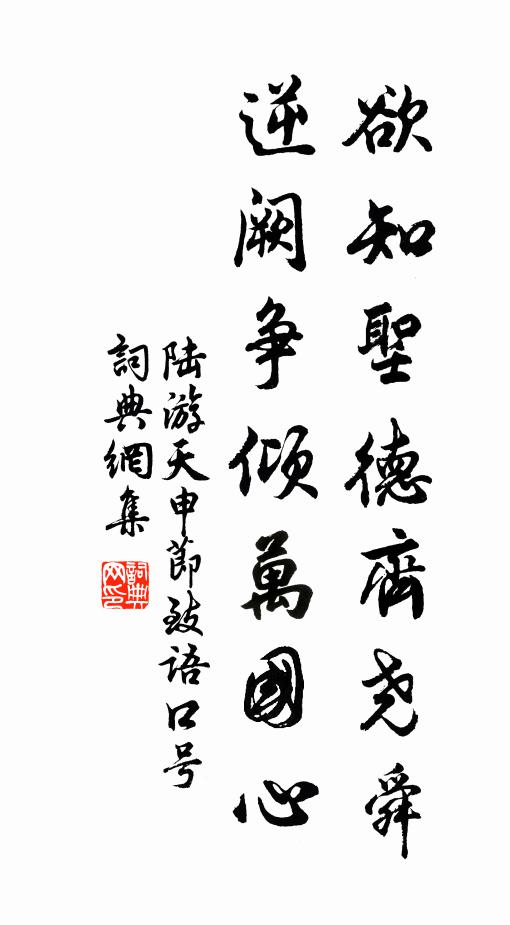 欲知聖德齊尧舜
逆闕争傾萬國心
陆游天申節致語口号
詞典網集
詞典网印